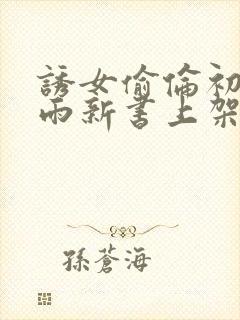 誘女偷倫初
雨新書上架
孫蒼海